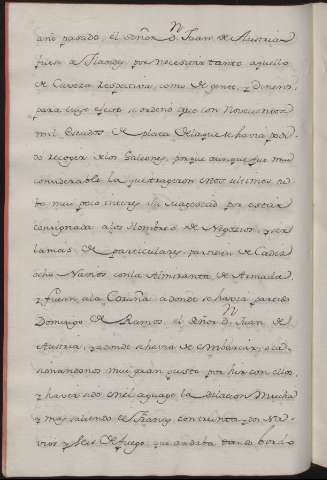 año pasado, el Señor Dn. Juan de Austria
fuese a Flandes por necesitar tanto aquello
de Caveza respectiva, como de gente, y dineros,
para cuyo efecto se ordenó que con Novecientos
mil Escudos de plata de la que se havia podi-
do recoger de los Galeones, porque aunque fue muy
considerable la que trageron estos ultimos, no
tomo poco interes Su Magestad por estar
consignada a los Hombres de Negocios, y ser
lamas de particulares, partiesen de Cadiz
ocho Navios con la Almiranta de Armada
y fuesen a la Coruña, a donde se havia partido
Domingo de Ramos, el Señor Dn. Juan de
Austria, y a donde se havia de embarcar,
muy gran gusto por hir con ellos,
y haver sido el la dilacion mucha
y mas saliendo de Francia con treinta y dos Na-
vios y seis de fuego, que andaba dando bordo